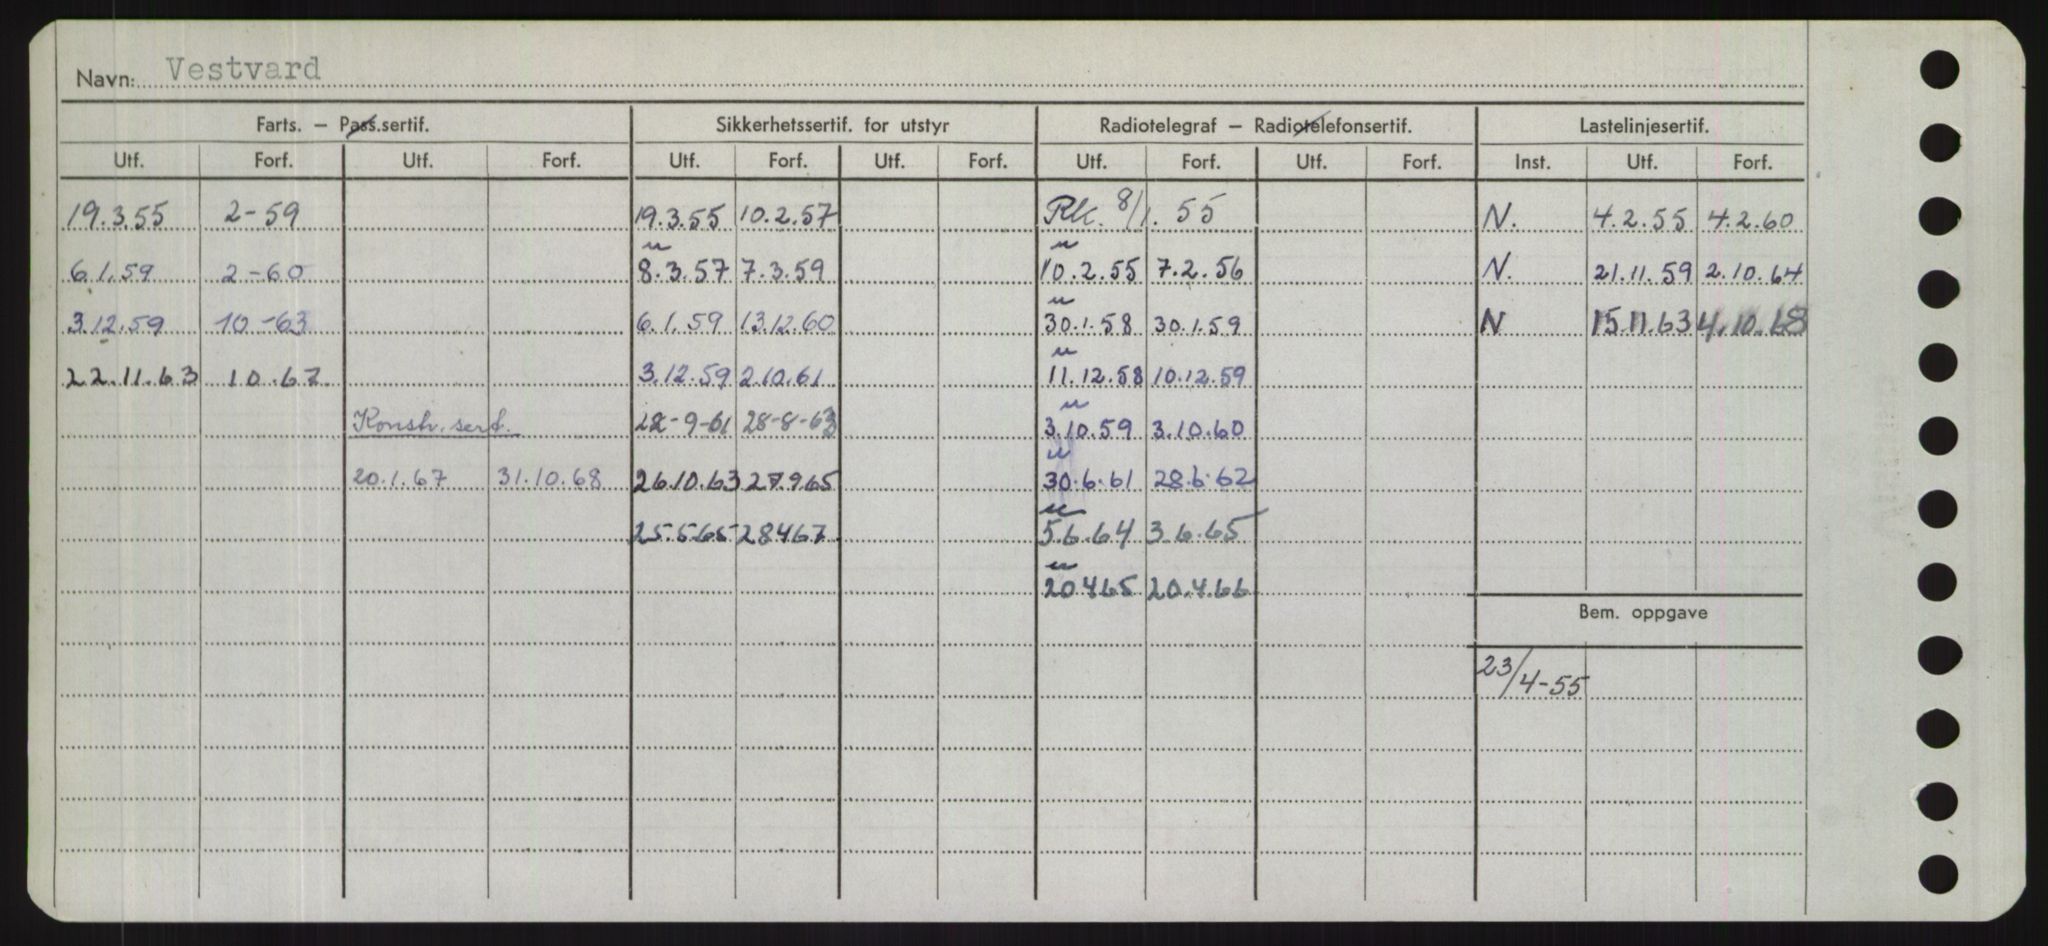 Navn: Vestvard
Farts. — Pass.sertif. Sikkerhetssertif. for utstyr Radiotelegraf — Radiotelefonsertif. Lastelinjesertif.
Utf. Forf. Utf. Forf. Utf. Forf. Utf. Forf. Utf. Forf. Utf. Forf. Inst. Utf. Forf.
19.3.55 2-59 19.3.55 10.2.57 Rk. 8/1. 55 N. 4.2.55 4.2.60
6.1.59 2-60 8.3.57 7.3.59 10.2.55 7.2.56 N. 21.11.59 2.10.64
3.12.59 10-63 6.1.59 13.12.60 30.1.58 30.1.59 N 15.11.63 4.10.68
22.11.63 10.67 3.12.59 2.10.61 11.12.58 10.12.59
Konstr. sert. 22-9-61 28-8-63 3.10.59 3.10.60
20.1.67 31.10.68 26.10.63 27.9.65 30.6.61 28.6.62
25.5.65 28467 5.6.64 3.6.65
20.4.65 20.4.66
Bem. oppgave
23/4-55